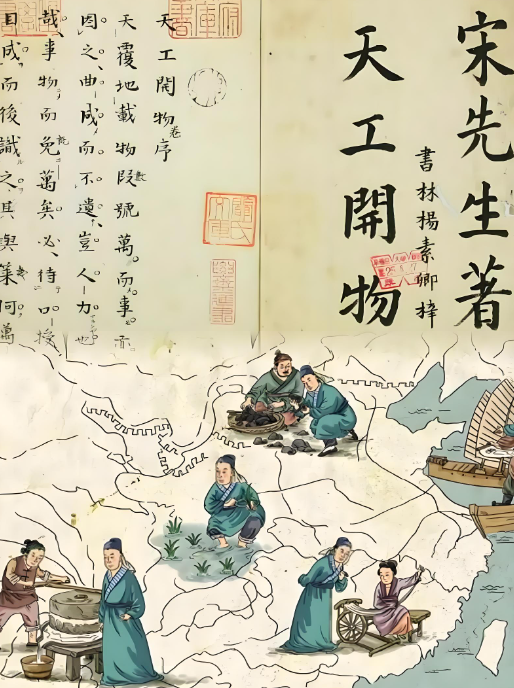 宋先生著
天工開物
書林楊素卿梓
天工開物卷序
天覆地載物數號萬而事亦
因之曲成而不遺豈人力也
哉事物而既萬矣必待口授
目成而後識之其與幾何萬